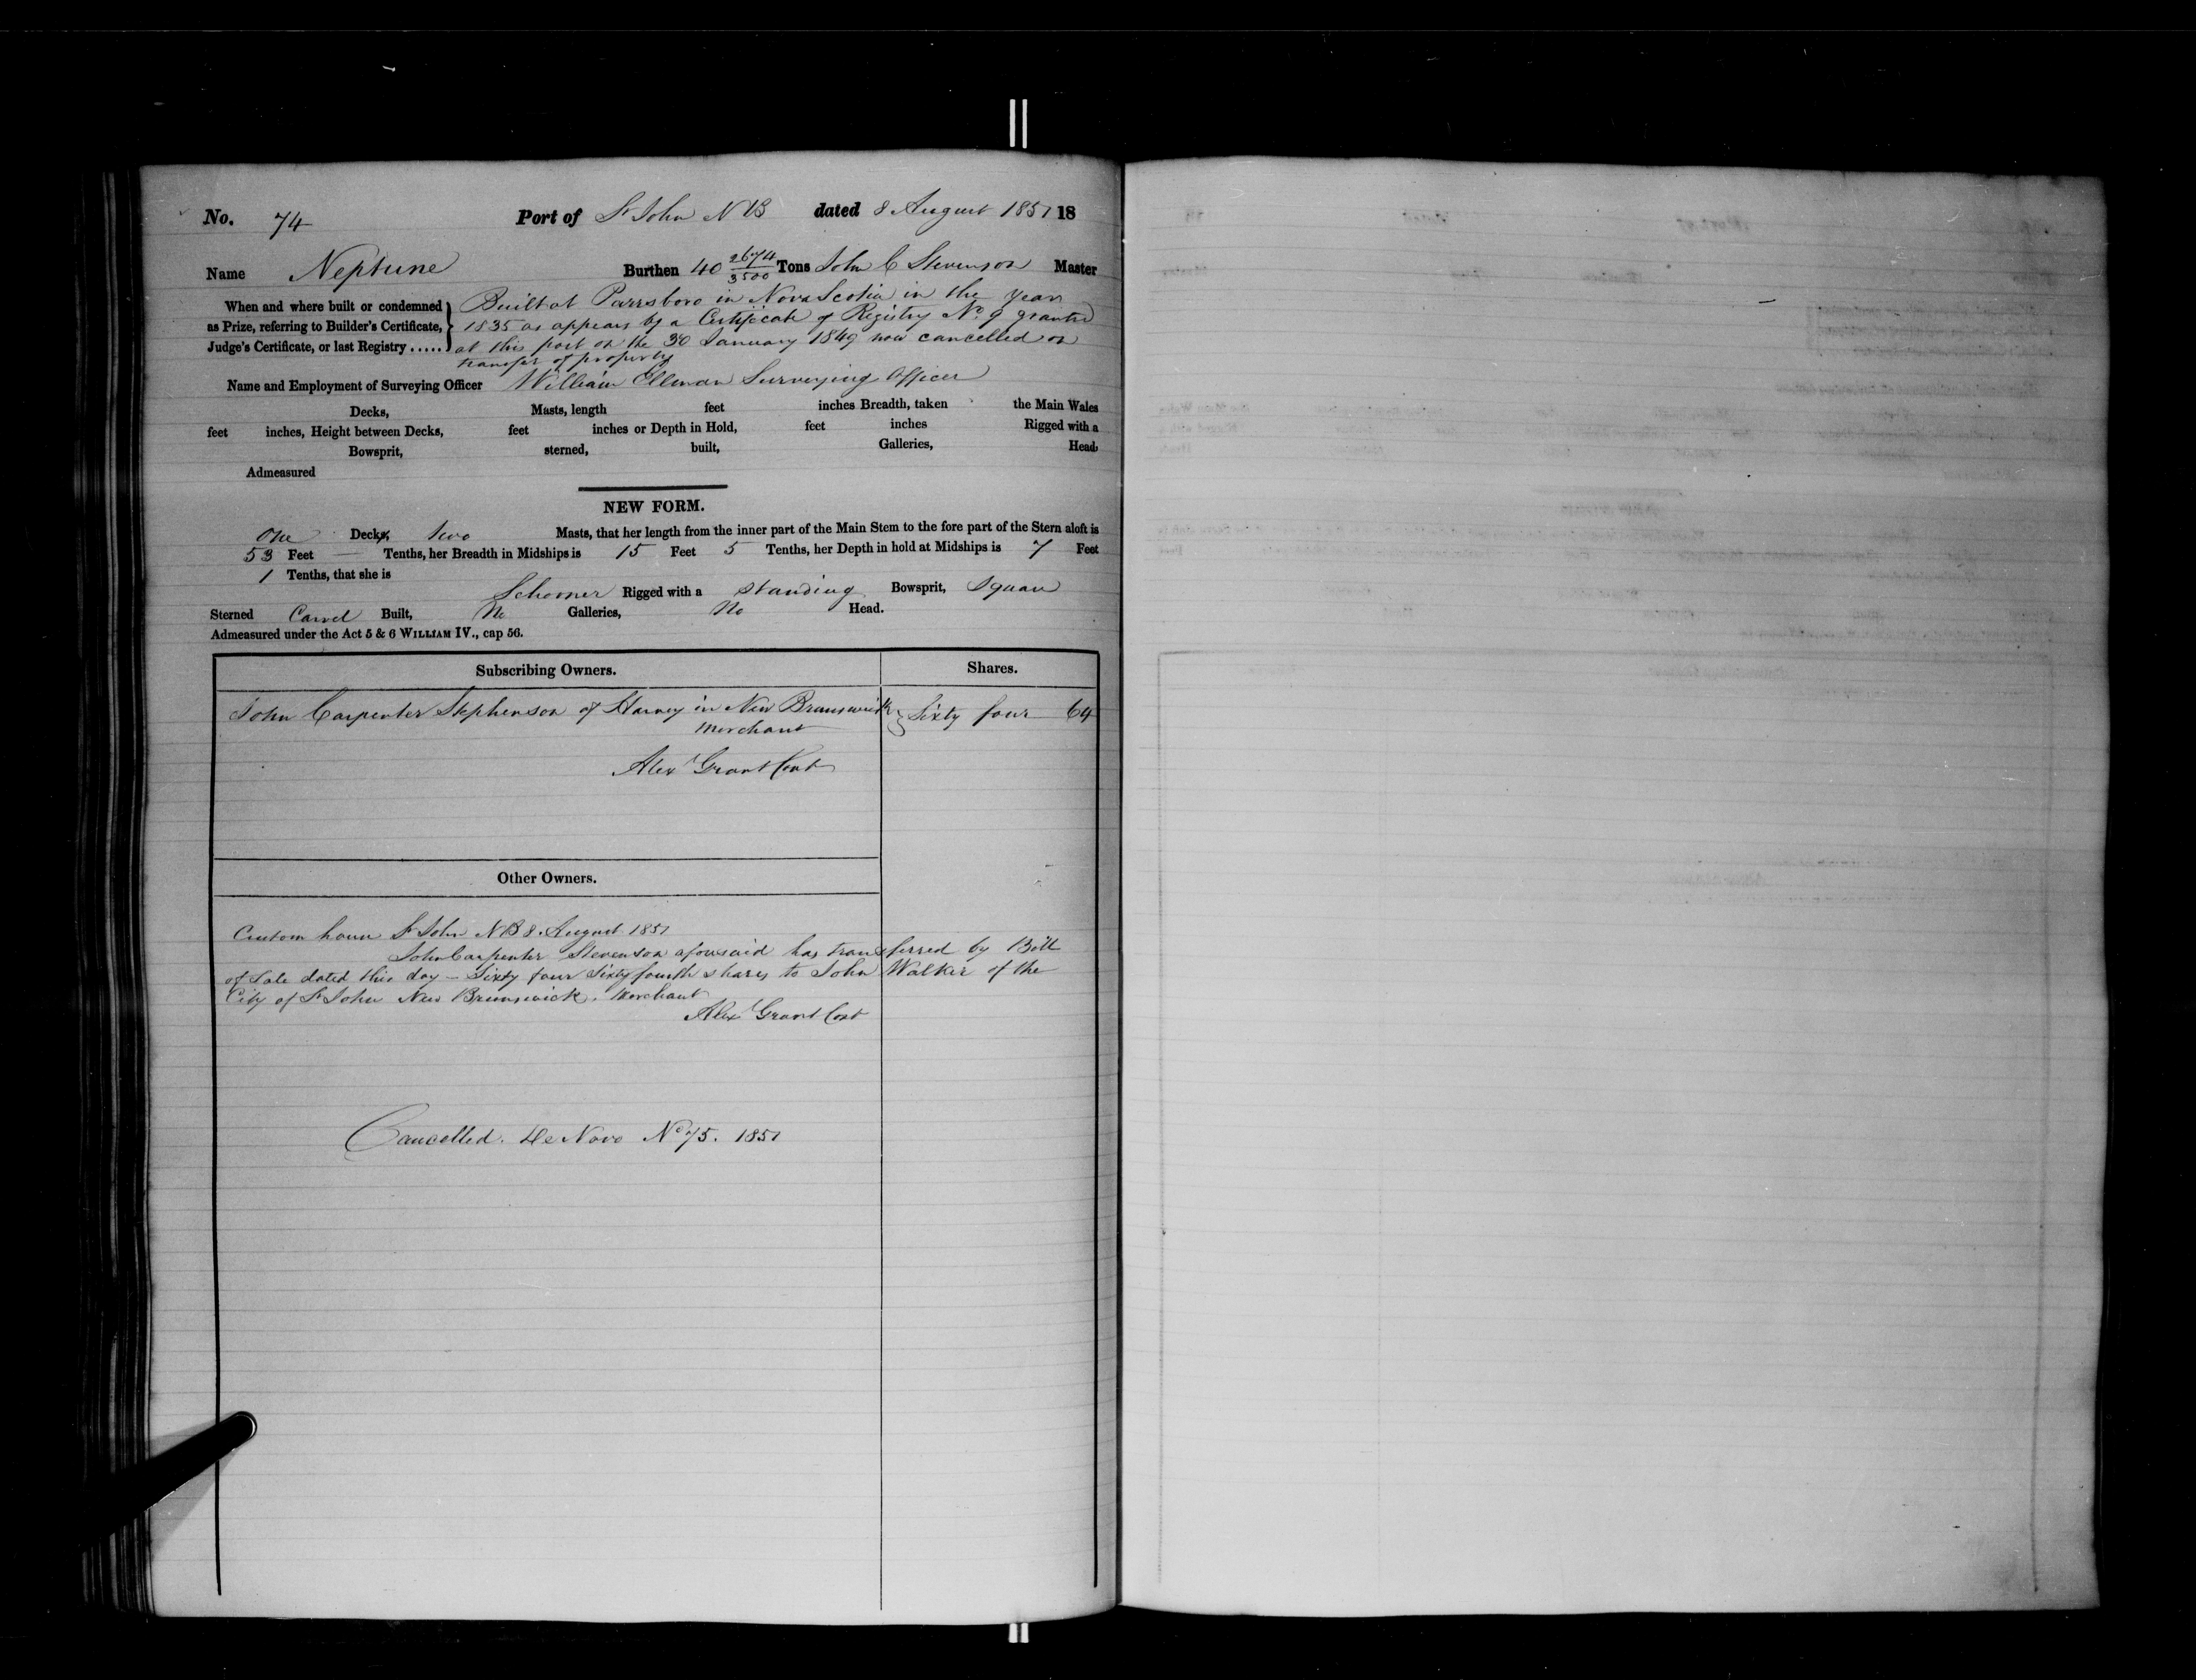 No. 74 Port of St John N B dated 8 August 1851 18
Name Neptune Burthen 40 2674/3500 Tons John C Stevenson Master
When and where built or condemned as Prize, referring to Builder's Certificate, Judge's Certificate, or last Registry ......
Built at Parrsboro in Nova Scotia in the Year
1835 as appears by a Certificate of Registry No. 9 granted
at this port on the 30 January 1849 now cancelled on
transfer of property
Name and Employment of Surveying Officer William Ellman Surveying Officer
Decks, Masts, length feet inches Breadth, taken the Main Wales
feet inches, Height between Decks, feet inches or Depth in Hold, feet inches Rigged with a
Bowsprit, sterned, built, Galleries, Head,
Admeasured
NEW FORM.
One Decks, two Masts, that her length from the inner part of the Main Stem to the fore part of the Stern aloft is
53 Feet — Tenths, her Breadth in Midships is 15 Feet 5 Tenths, her Depth in hold at Midships is 7 Feet
1 Tenths, that she is
Schooner Rigged with a standing Bowsprit, Square
Sterned Carvel Built, No Galleries, No Head.
Admeasured under the Act 5 & 6 WILLIAM IV., cap 56.
Subscribing Owners. Shares.
John Carpenter Stephenson of Harvey in New Brunswick } Sixty four 64
Merchant
Alex Grant Cont
Other Owners.
Custom house St John N B 8. August 1851
John Carpenter Stevenson aforesaid has transferred by Bill
of Sale dated this day – Sixty four Sixty fourth shares to John Walker of the
City of St John New Brunswick. Merchant
Alex Grant Cont
Cancelled. De Novo No 75. 1851